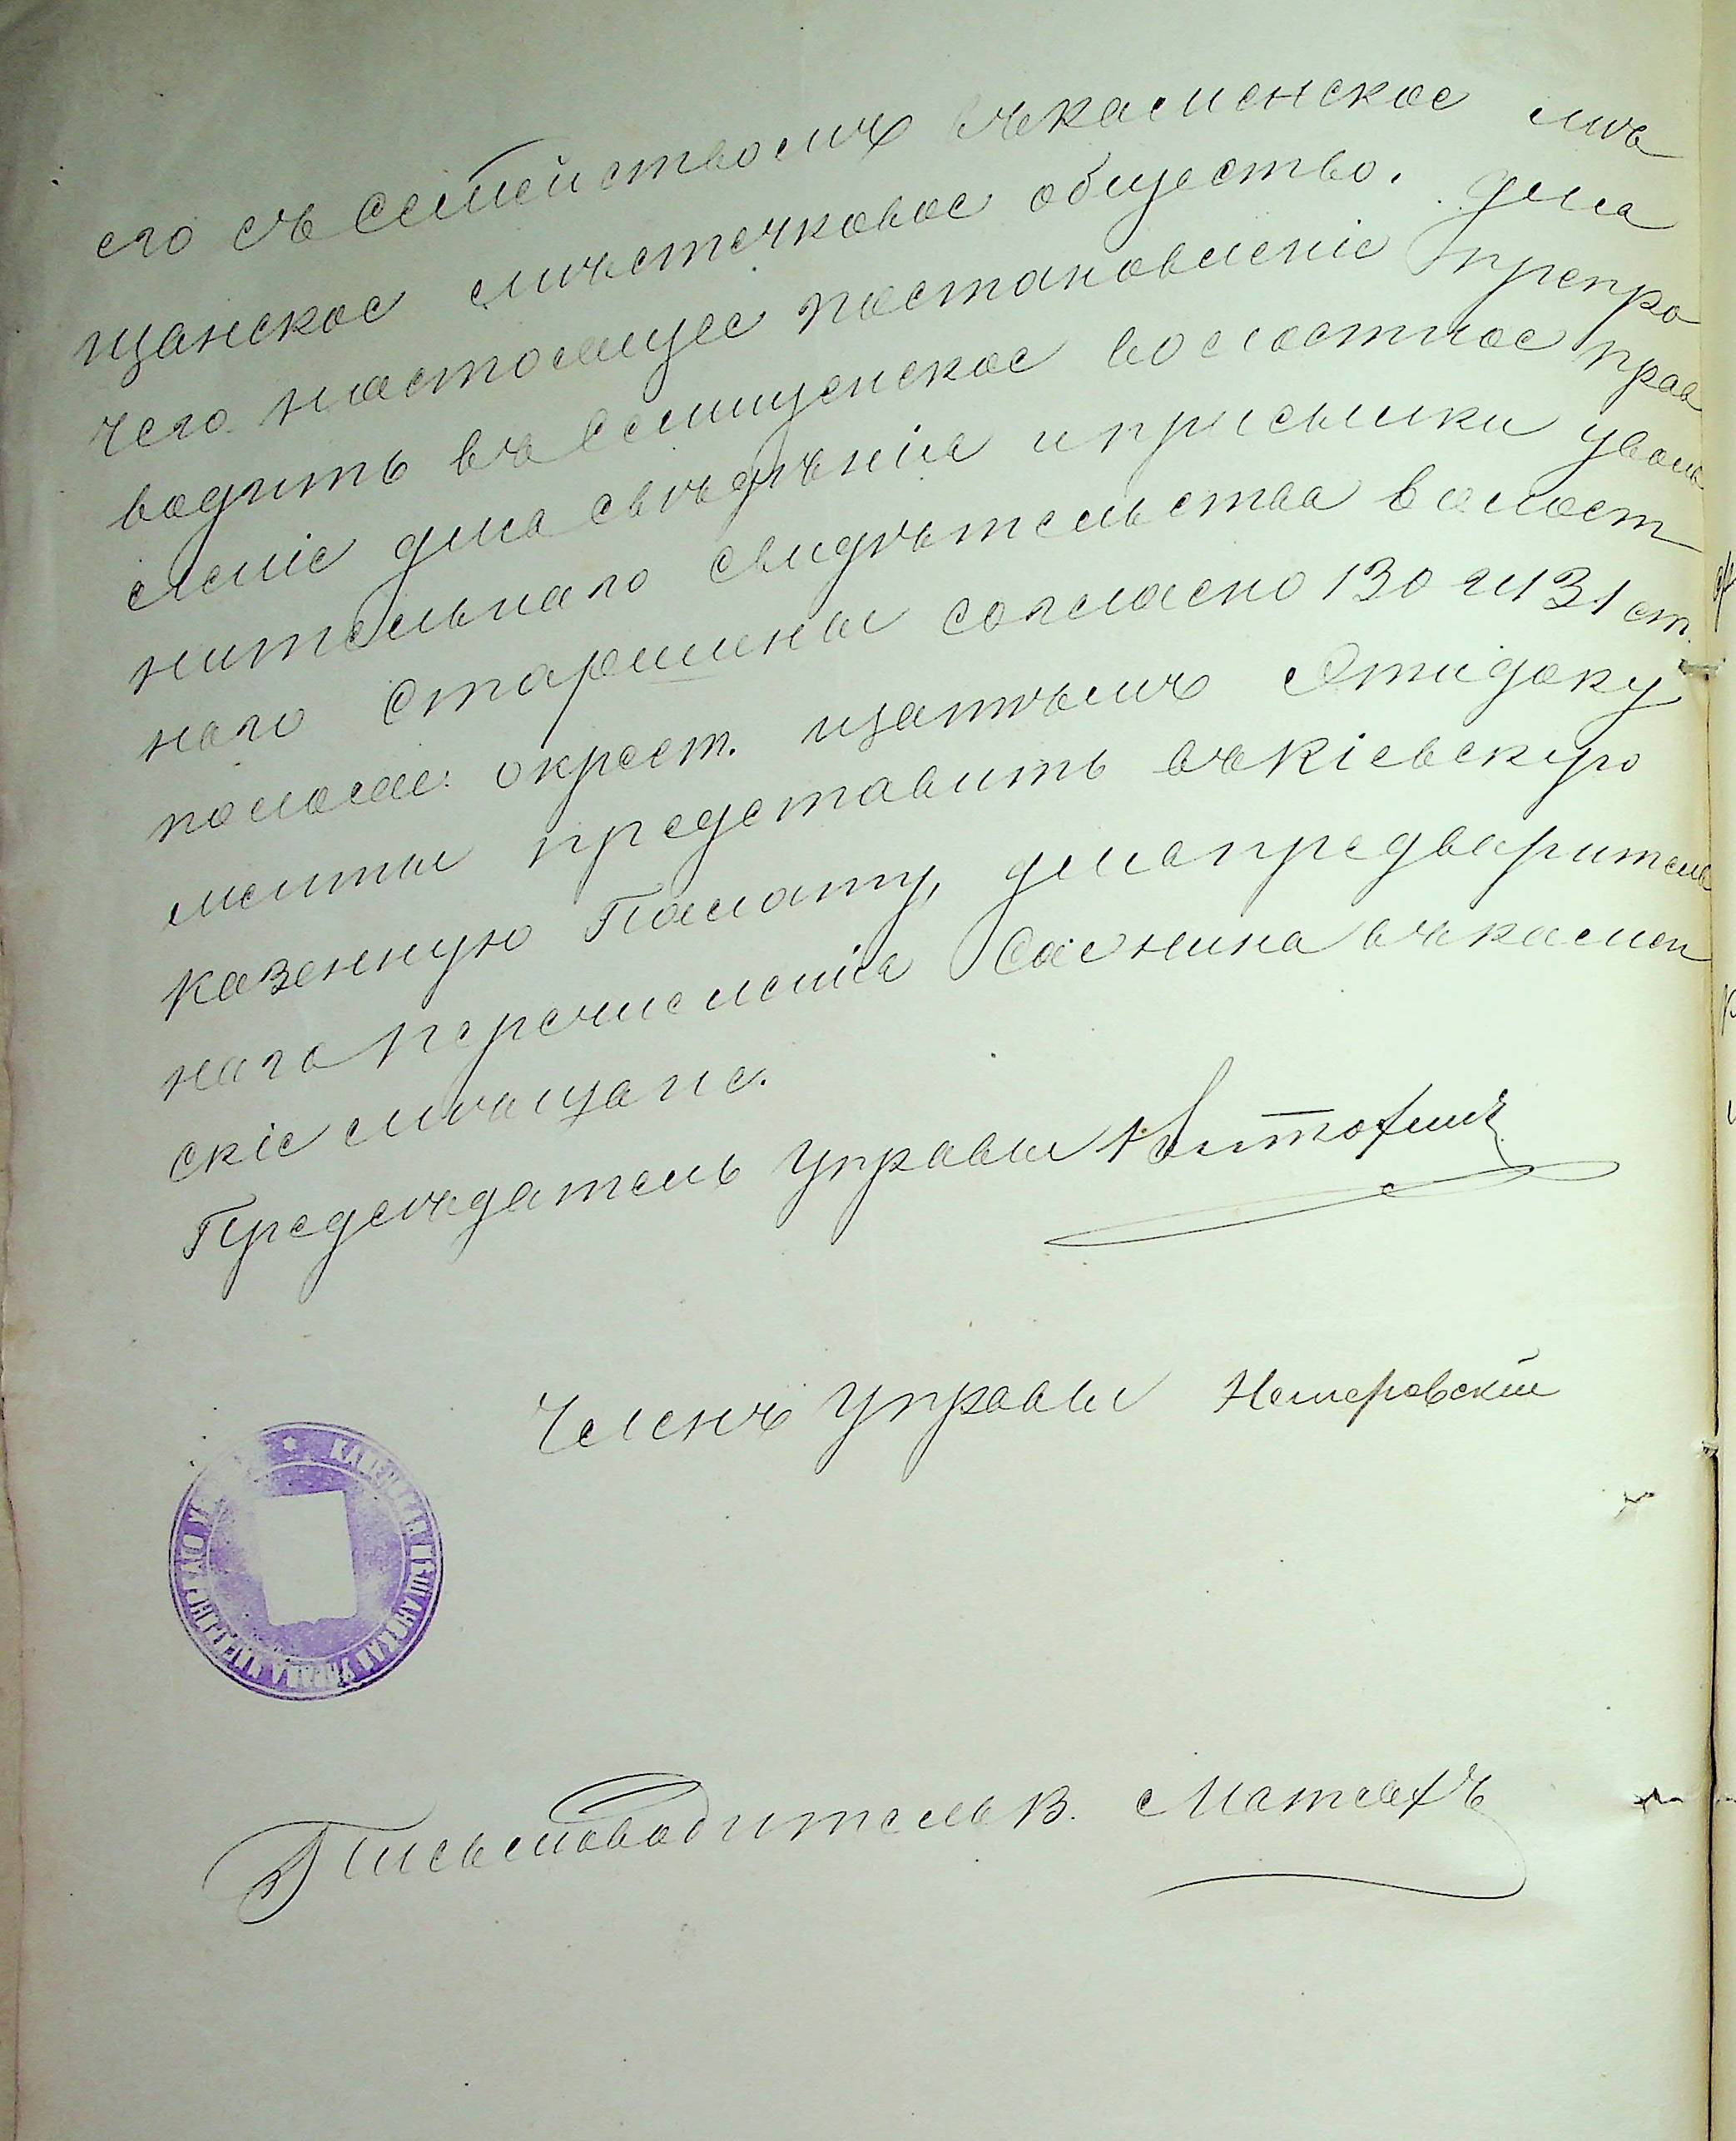 его съ семействомъ въ каменское мѣ
щанское мѣстечковое общество. для
чего настоящее постановленіе препро
водить въ волостное прав
леніе для свѣдѣнія и присылки уволь
нительнаго свидѣтельства волост
наго Старшины согласно 130 и 131 ст.
полож: о крест. и затѣмъ эти доку
менты представить въ Кіевскую
Казенную Палату, для предваритель
наго перечисленія въ камен
скіе мѣщане.
Предсѣдатель Управы
Членъ Управы Немеровскій
КАМЕНСКАЯ МѢЩАНСКАЯ УПРАВА
Письмоводитель В.